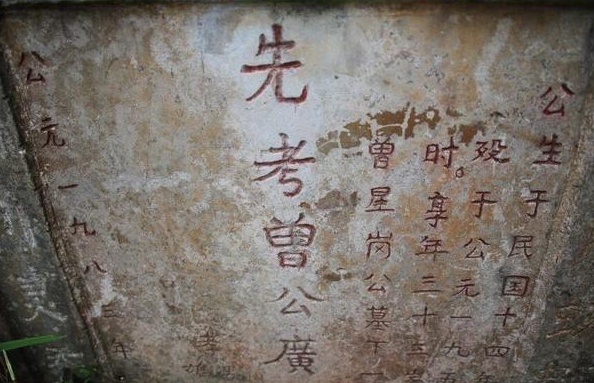 公生于民国十四年
殁于公元一九五
时。享年三十五岁
曾星岗公墓下一
先考曾公廣
孝
雄
公元一九八三年